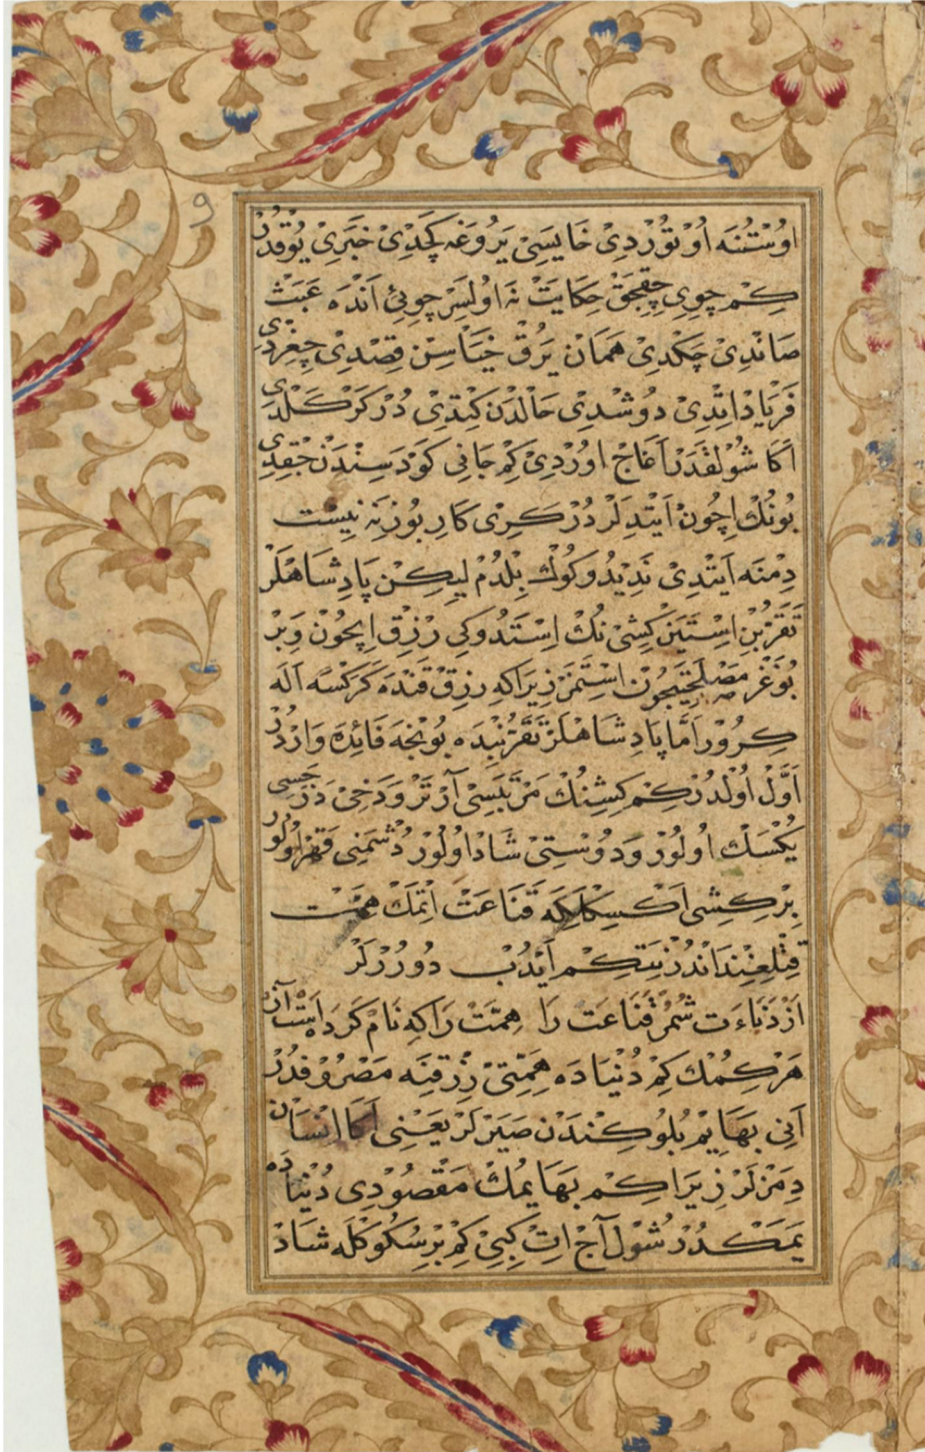 اوُسْتُنَه اوُتوُرْدِیْ خَایسِیْ یَرُوغَه کَچْدِیْ خَبَرِیْ یُوْقدُرْ
کِمْ چوِیِ چِقِجَقْ حِکَایَتْ نَه اوُلِسَرْ چوِیِ اَنْدَه عَبَثْ
صَانْدِیْ چَکْدِیْ هَمَانْ یَرُقْ خَیَاسِنْ قِصْدِیْ چِغِرْدِیْ
فَرْیَادْ اِتْدِیْ دوُشْدِیْ حَالْدَنْ کِتْدِیْ دُرْکَرْ کَلْدِیْ
اَکَا شوُلْقَدَرْ اَغَاجْ اوُرْدِیْ کِمْ جَانِی کَوْدَسِنْدَنْ چِقْدِیْ
بُونُكْ اِچُونْ اَیْتْدِلَرْ دُرْکِرِیْ کَارِ بُوزِنَه نِیسْت
دِمْنَه اَیْتْدِیْ نَدِیْدُوکُوكْ بِلْدُمْ لِیکِنْ پَادِشَاهْلَرْ
تَقَرُّبْنِ اِسْتَیَنْ کِشِیْ نُكْ اِسْتَدُوکِی رِزْقْ اِیچُونْ وَبِرْ
بُوغَزْ مَصْلَحَتِیچُونْ اِسْتَمَزْ زِیرَاکِه رِزْقْ قَنْدَه کَرَکْسَه اَلَه
کِرُوْرْ اَمَّا پَادِشَاهْلَرْ تَقَرُّبِنْدَه بُونْجَه فَائِدَه وَارْدُرْ
اَوَّلْ اُوْلْدُرْ کِمْ کِشِنُكْ مَرْتَبَسِیْ آرْتَرْ وَدَخِیْ دَرَجَسِی
یُکْسَكْ اُولُوْرْ وَدوُسْتِیْ شَادْ اوُلُوْرْ دُشْمَنِی قَهْرْ اوُلُورْ
بِرْ کِشِی اَکْسِکْلِکَه قَنَاعَتْ اِتْمَكْ هِمَّتْ
قِتْلِغِنْدَانْدُرْ نِتَکِمْ اَیْدُبْ دُورُرْلَرْ
اَزْ دَنَاءَتْ شُمُرْ قَنَاعَتْ رَا هِمَّتْ رَا کِه نَامْ کَرْدَه اَسْتْ آزْ
هَرْ کِمُكْ کِمْ دُنْیَادَه هِمَّتِیْ رِزْقِنَه مَصْرُوفْدُرْ
اَنِی بَهَایِمْ بُلُوکِنْدَنْ صَیَرْلَرْ یَعْنِی اَکَا اِنْسَانْ
دِمَزْلَرْ زِیرَا کِمْ بَهَایِمُكْ مَقْصُودِی دُنْیَادَه
یَمَکْدُرْ شُوْلْ آجْ اِتْ کِبِیْ کِمْ بِرْ سُکُوکْلَه شَادْ